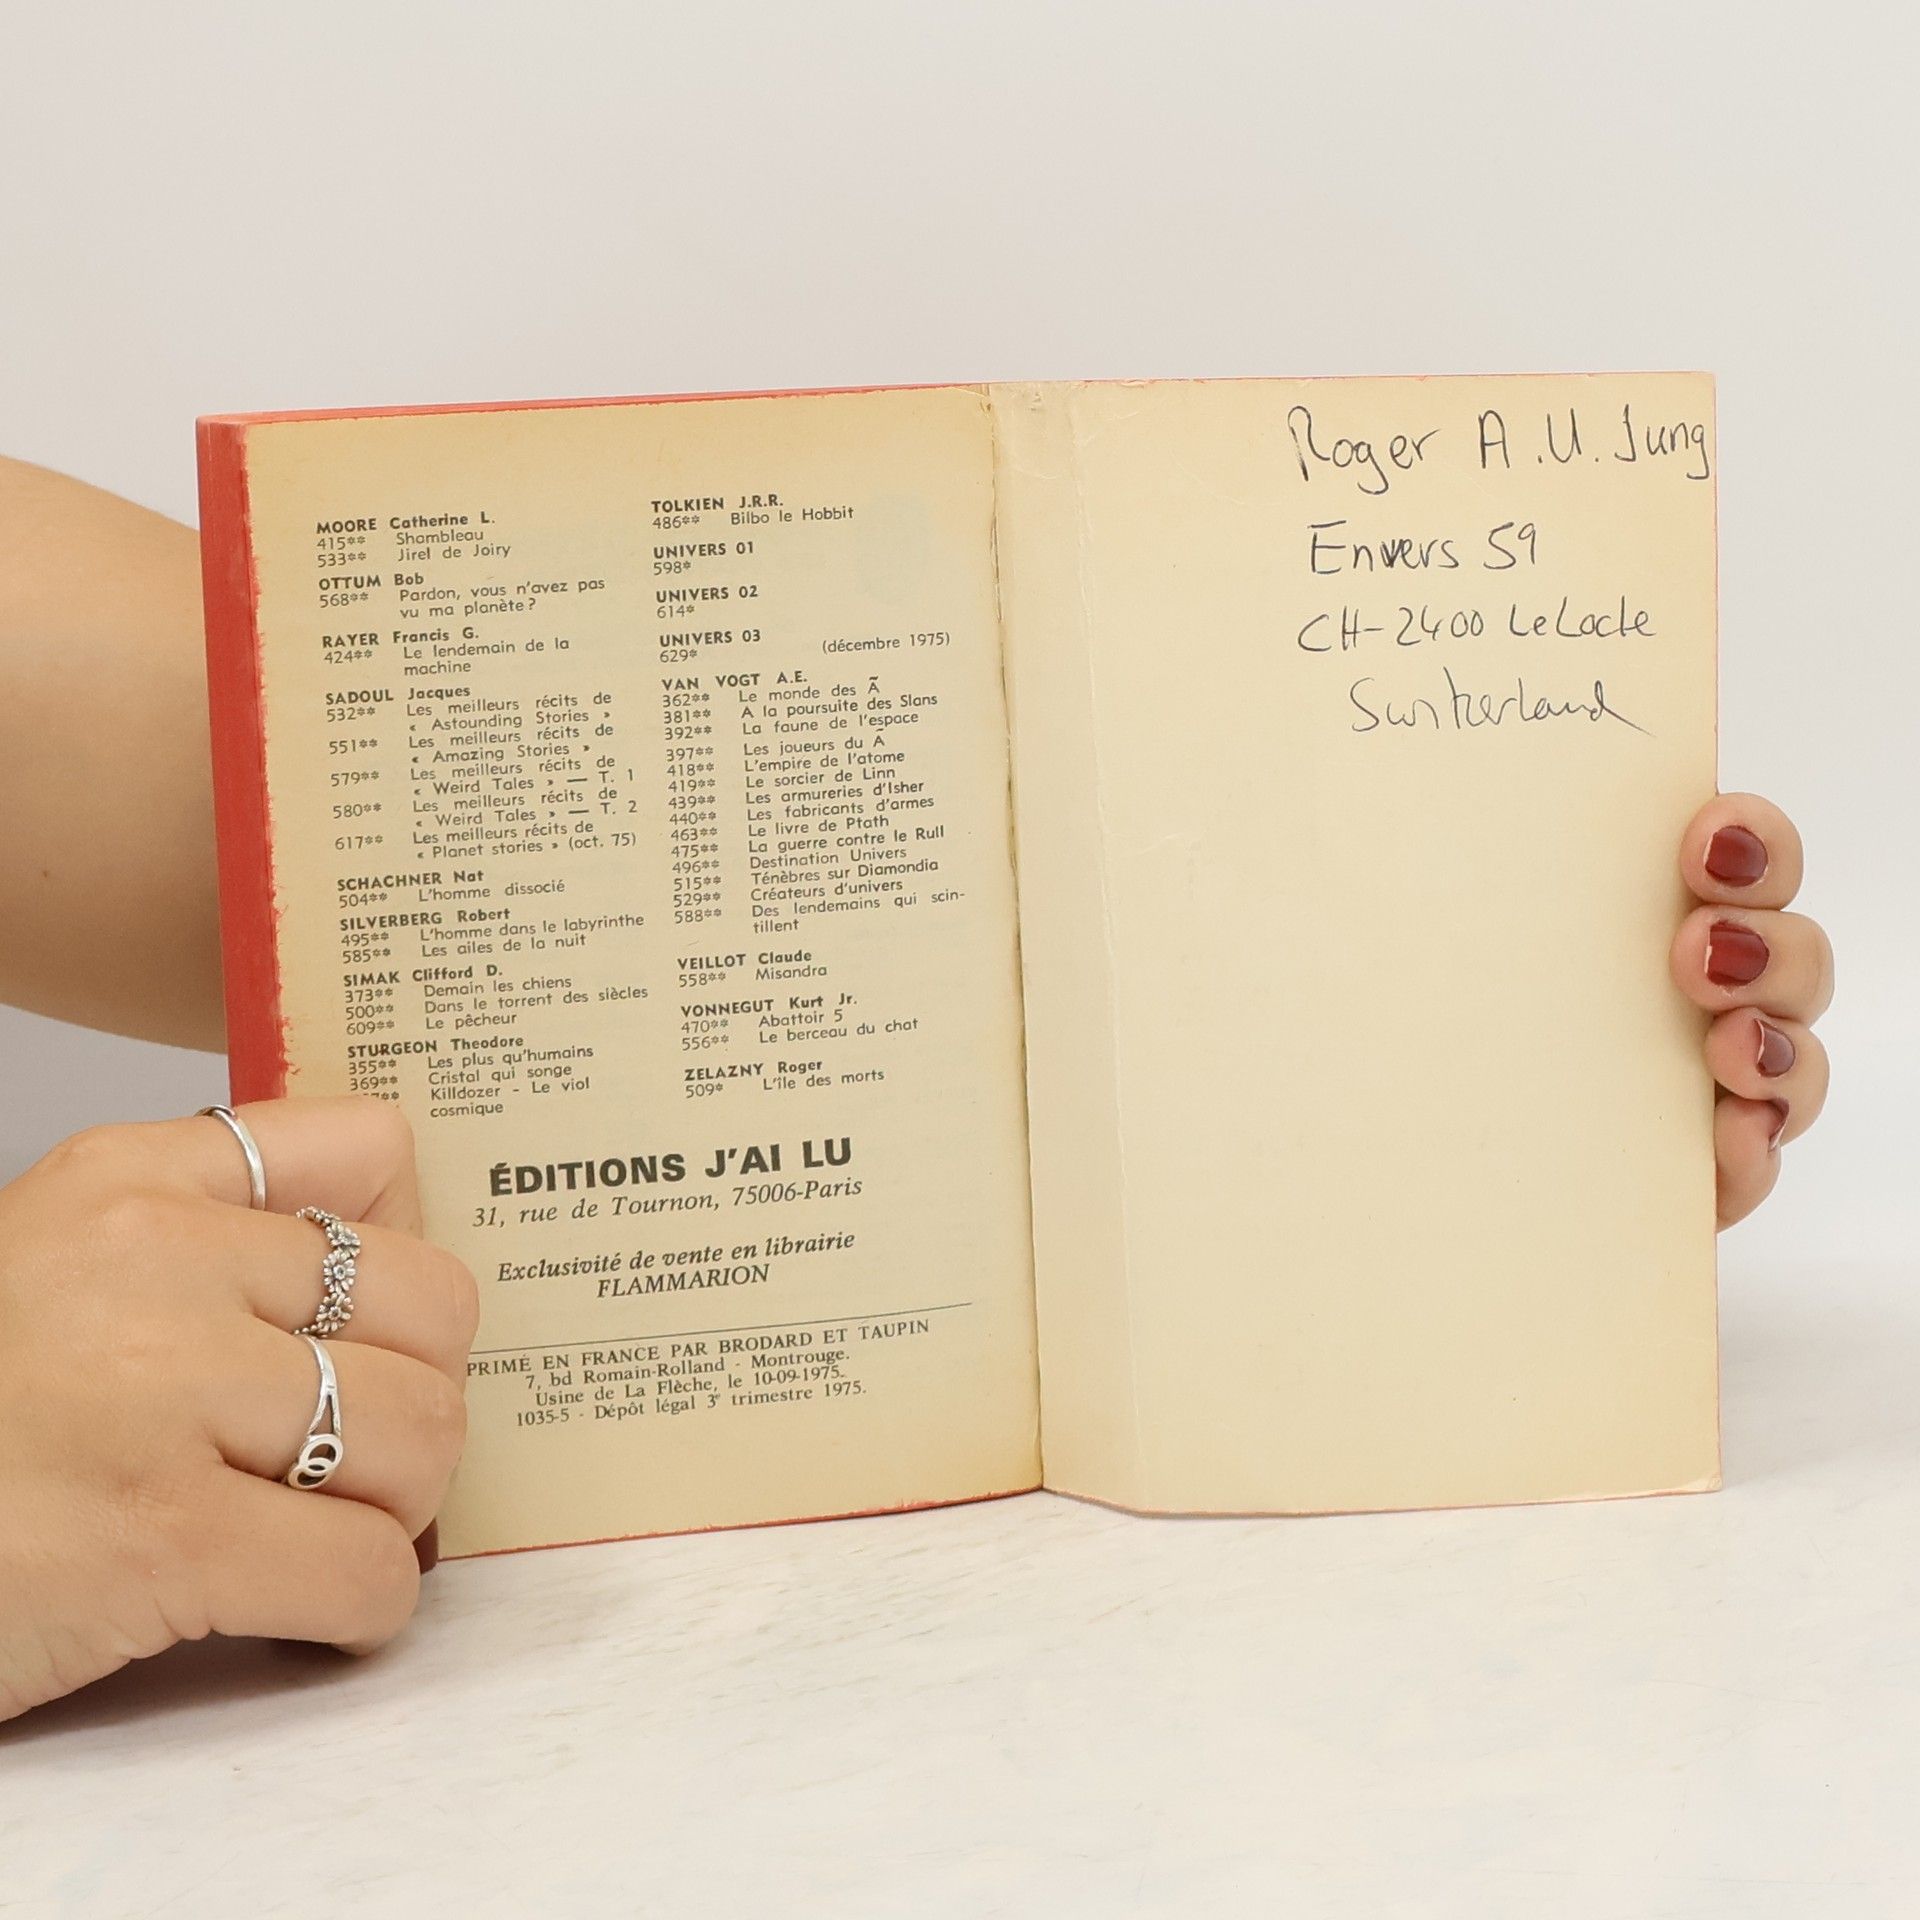 MOORE Catherine L.
415** Shambleau
533** Jirel de Joiry
OTTUM Bob
568** Pardon, vous n'avez pas
vu ma planète ?
RAYER Francis G.
424** Le lendemain de la
machine
SADOUL Jacques
532** Les meilleurs récits de
« Astounding Stories »
551** Les meilleurs récits de
« Amazing Stories »
579** Les meilleurs récits de
« Weird Tales » — T. 1
580** Les meilleurs récits de
« Weird Tales » — T. 2
617** Les meilleurs récits de
« Planet stories » (oct. 75)
SCHACHNER Nat
504** L'homme dissocié
SILVERBERG Robert
495** L'homme dans le labyrinthe
585** Les ailes de la nuit
SIMAK Clifford D.
373** Demain les chiens
500** Dans le torrent des siècles
609** Le pêcheur
STURGEON Theodore
355** Les plus qu'humains
369** Cristal qui songe
Killdozer - Le viol
cosmique
TOLKIEN J.R.R.
486** Bilbo le Hobbit
UNIVERS 01
598*
UNIVERS 02
614*
UNIVERS 03
629* (décembre 1975)
VAN VOGT A.E.
362** Le monde des Ã
381** A la poursuite des Slans
392** La faune de l'espace
397** Les joueurs du Ã
418** L'empire de l'atome
419** Le sorcier de Linn
439** Les armureries d'Isher
440** Les fabricants d'armes
463** Le livre de Ptath
475** La guerre contre le Rull
496** Destination Univers
515** Ténèbres sur Diamondia
529** Créateurs d'univers
588** Des lendemains qui scin-
tillent
VEILLOT Claude
558** Misandra
VONNEGUT Kurt Jr.
470** Abattoir 5
556** Le berceau du chat
ZELAZNY Roger
509* L'île des morts
ÉDITIONS J'AI LU
31, rue de Tournon, 75006-Paris
Exclusivité de vente en librairie
FLAMMARION
PRIMÉ EN FRANCE PAR BRODARD ET TAUPIN
7, bd Romain-Rolland - Montrouge.
Usine de La Flèche, le 10-09-1975.
1035-5 - Dépôt légal 3e trimestre 1975.
Roger A.U. Jung
Envers 59
CH-2400 Le Locle
Switzerland